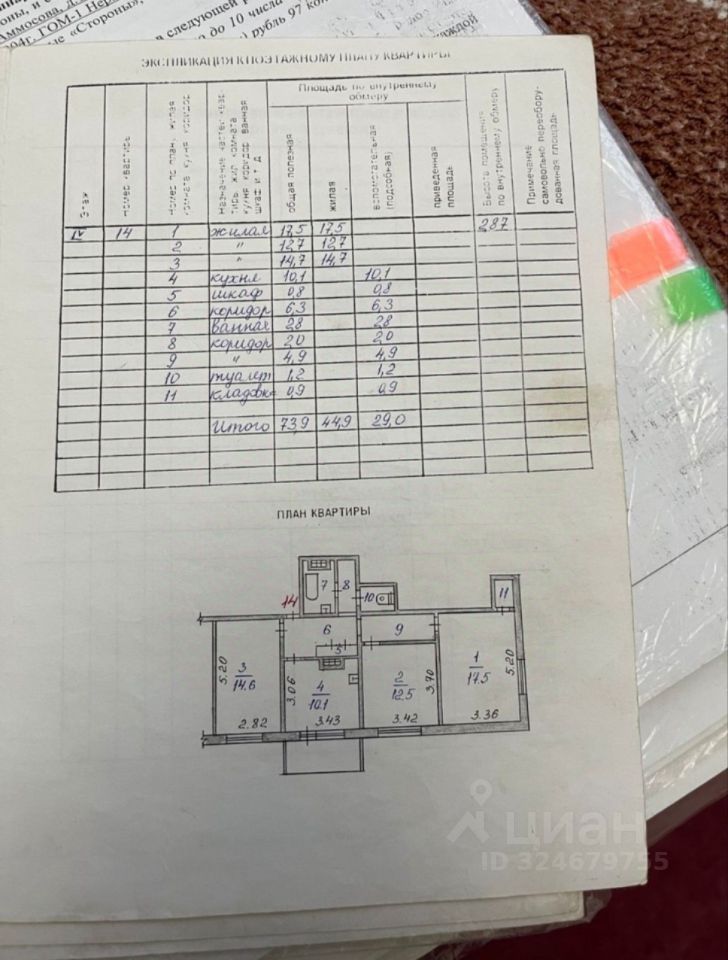 Аммосова, д.
ГОМ-1
«Стороны»,
следующей
до 10 числа
рубль 97 ко
ЭКСПЛИКАЦИЯ К ПОЭТАЖНОМУ ПЛАНУ КВАРТИРЫ
Этаж
Номер квартиры
Номер по плану жилая комната кухня коридор
Назначение частей квартиры жил комната кухня коридор ванная шкаф и т д
Площадь по внутреннему обмеру
общая полезная
жилая
вспомогательная (подсобная)
приведенная площадь
Высота помещения по внутреннему обмеру
Примечание самовольно переоборудованная площадь
IV 14 1 жилая 17,5 17,5 287
2 " 12,7 12,7
3 " 14,7 14,7
4 кухня 10,1 10,1
5 шкаф 0,8 0,8
6 коридор 6,3 6,3
7 ванная 2,8 2,8
8 коридор 2,0 2,0
9 " 4,9 4,9
10 туалет 1,2 1,2
11 кладовк 0,9 0,9
Итого 73,9 44,9 29,0
ПЛАН КВАРТИРЫ
7 8 10 11
14
6 9
5
5.20 3 14.6 3.06 4 10.1 2 12.5 3.70 1 17.5 5.20
2.82 3.43 3.42 3.36
циан
ID 324679755